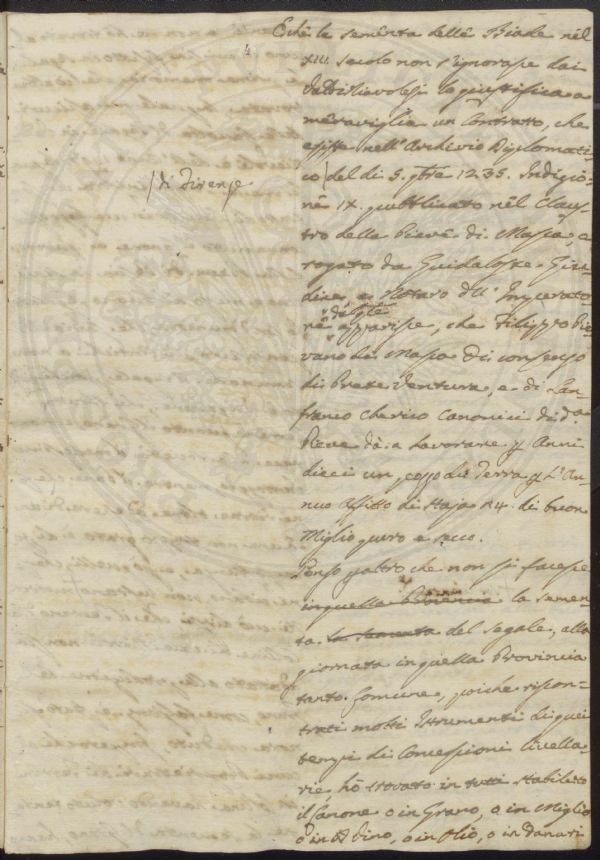 E che la sementa delle Biade nel
4
XIII. secolo non s'ignorasse dai
Valdinievolesi lo giustifica a
meraviglia un Contratto, che
esiste nell'Archivio Diplomati-
co / del dì 5. 9bre 1235. Indizio-
/ di Firenze
ne IX. pubblicato nel Claus-
tro della Pieve di Massa, e
rogato da Giu-
dice, e Notaro dell' Imperato-
re dal qle
apparisce, che Filippo Pie-
vano di Massa di consenso
di Prete Ventura, e di Lan-
franco Cherico Canonici di da
Pieve dà a lavorare p Anni
dieci un pezzo di Terra p L'An-
nuo Affitto di Staja 14. di buon
Miglio puro e secco.
Penso peraltro che non si facesse
in quella Provincia la semen-
ta la sementa del segale, alla
giornata in quella Provincia
tanto Comune, poiche riscon-
trati molti Istrumenti di quei
tempi di Concessioni livella-
rie, hò trovato in tutti stabilito
il Canone o in Grano, o in Miglio
o in Vino, o in Olio, o in danari